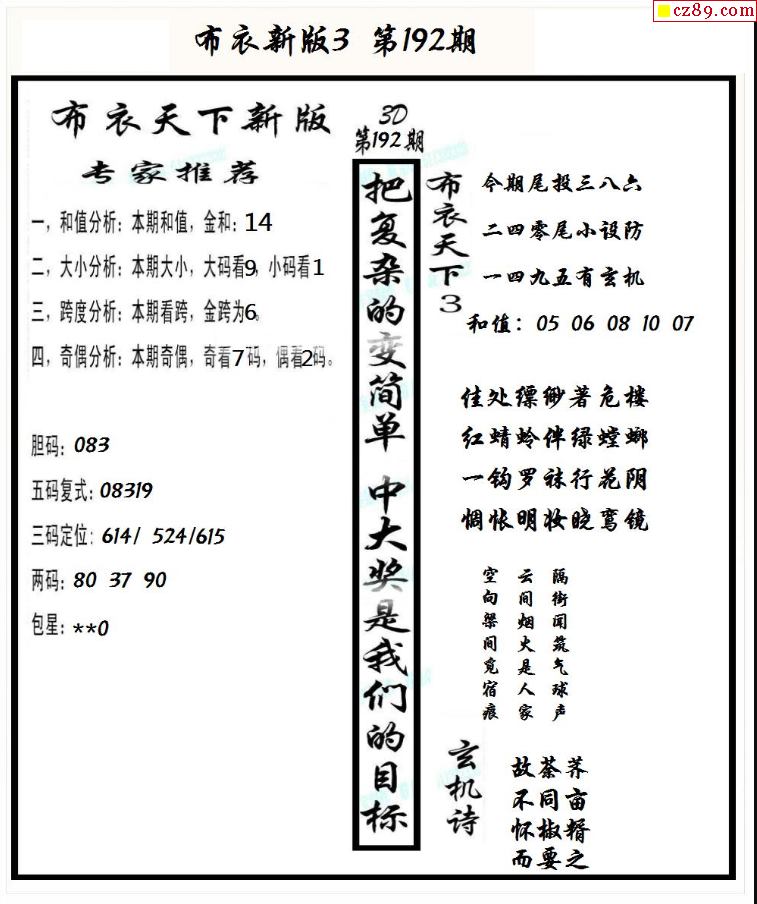 cz89.com
布衣新版3 第192期
布衣天下新版
专家推荐
一，和值分析：本期和值，金和：14
二，大小分析：本期大小，大码看9，小码看1
三，跨度分析：本期看跨，金跨为6。
四，奇偶分析：本期奇偶，奇看7码，偶看2码。
胆码：083
五码复式：08319
三码定位：614/ 524/615
两码：80 37 90
包星：**0
3D
第192期
把复杂的变简单 中大奖是我们的目标
布衣天下3
今期尾投三八六
二四零尾小设防
一四九五有玄机
和值：05 06 08 10 07
佳处缥缈著危楼
红蜻蛉伴绿螳螂
一钩罗袜行花阴
惆怅明妆晓鸾镜
隔街闻筑气球声
云间烟火是人家
空向梁间觅宿痕
玄机诗
故荼荠
不同亩
怀椒糈
而要之